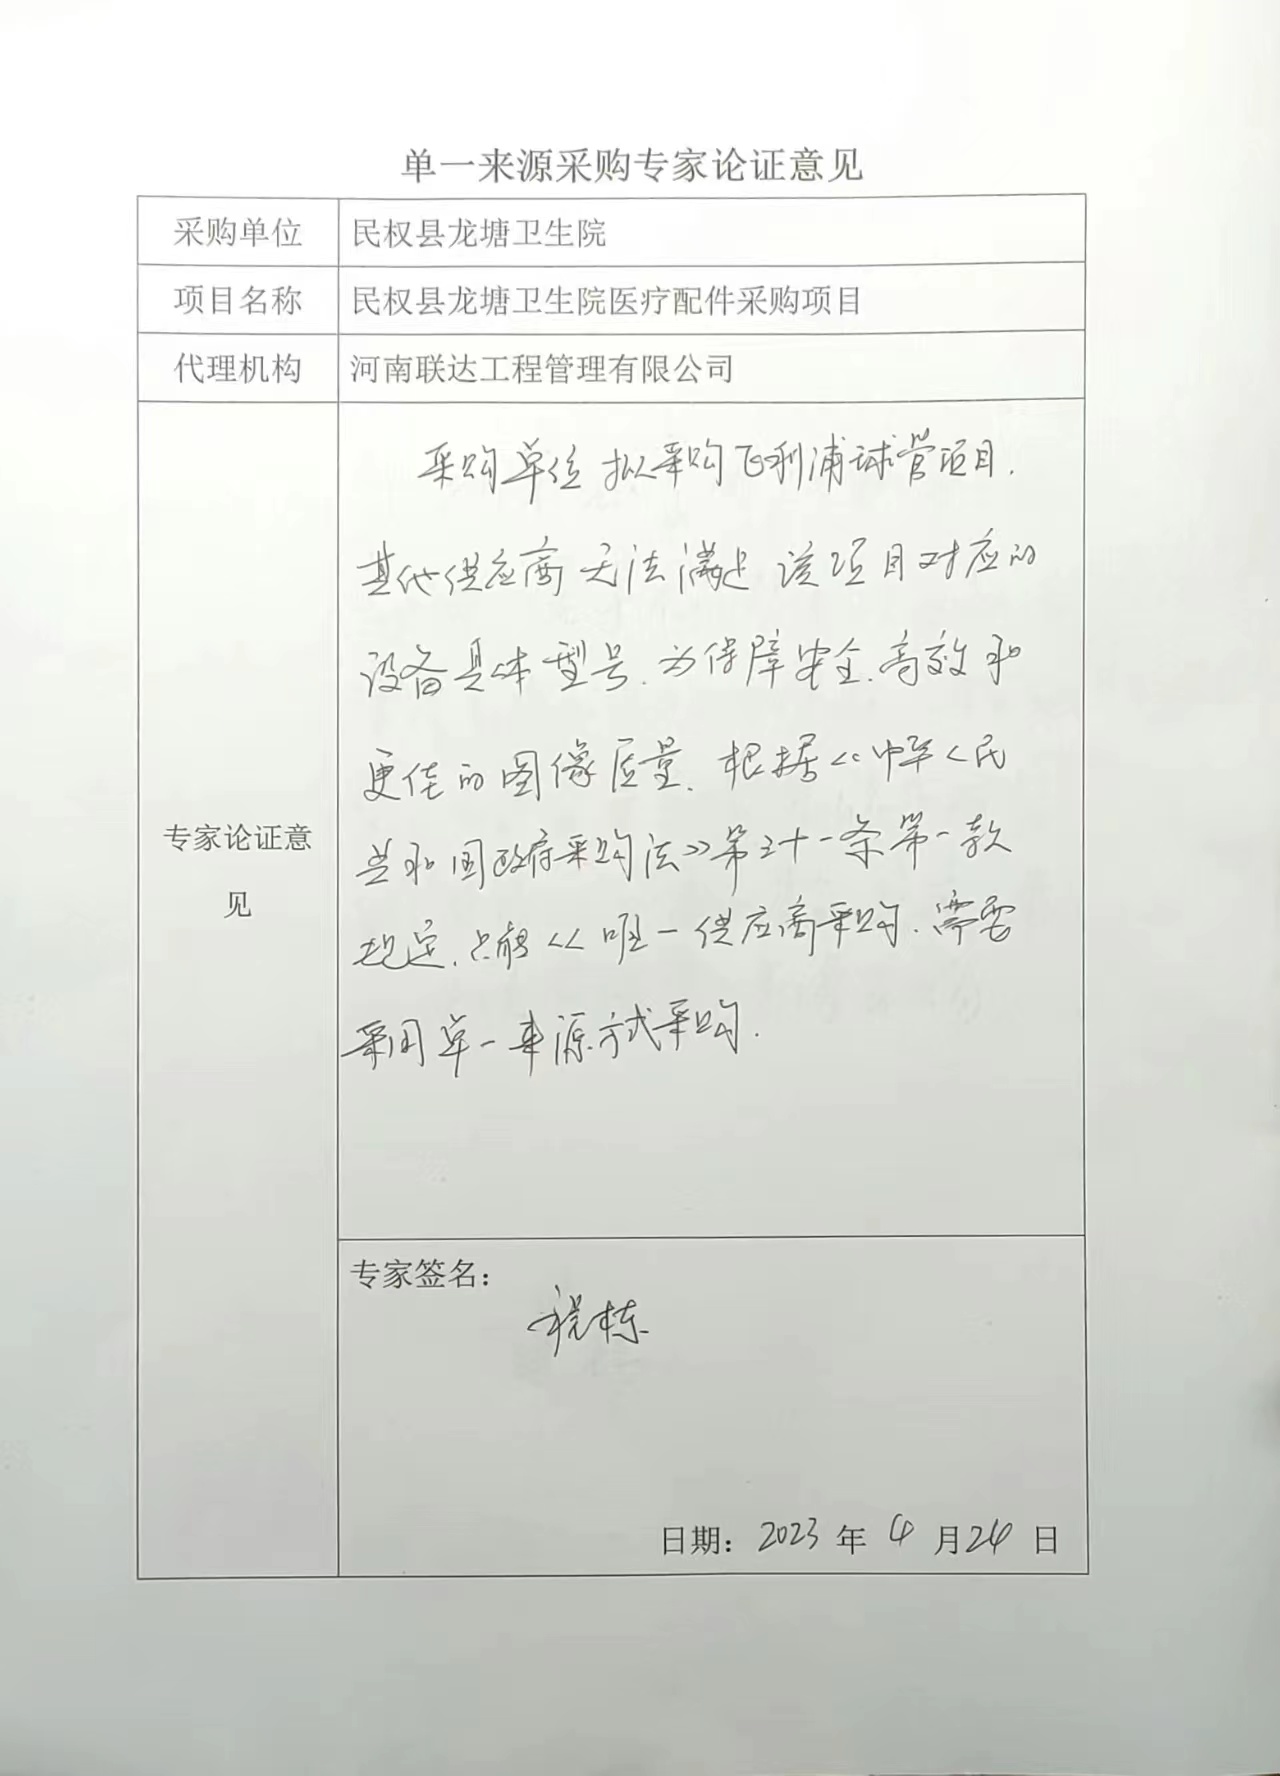 单一来源采购专家论证意见
采购单位 民权县龙塘卫生院
项目名称 民权县龙塘卫生院医疗配件采购项目
代理机构 河南联达工程管理有限公司
采购单位拟采购飞利浦球管项目.
其他供应商无法满足该项目对应的
设备具体型号.为保障安全.高效和
更佳的图像质量.根据《中华人民
共和国政府采购法》第三十一条第一款
规定.只能从唯一供应商采购.需要
采用单一来源方式采购.
专家论证意
见
专家签名:
程栋
日期: 2023 年 4 月 24 日